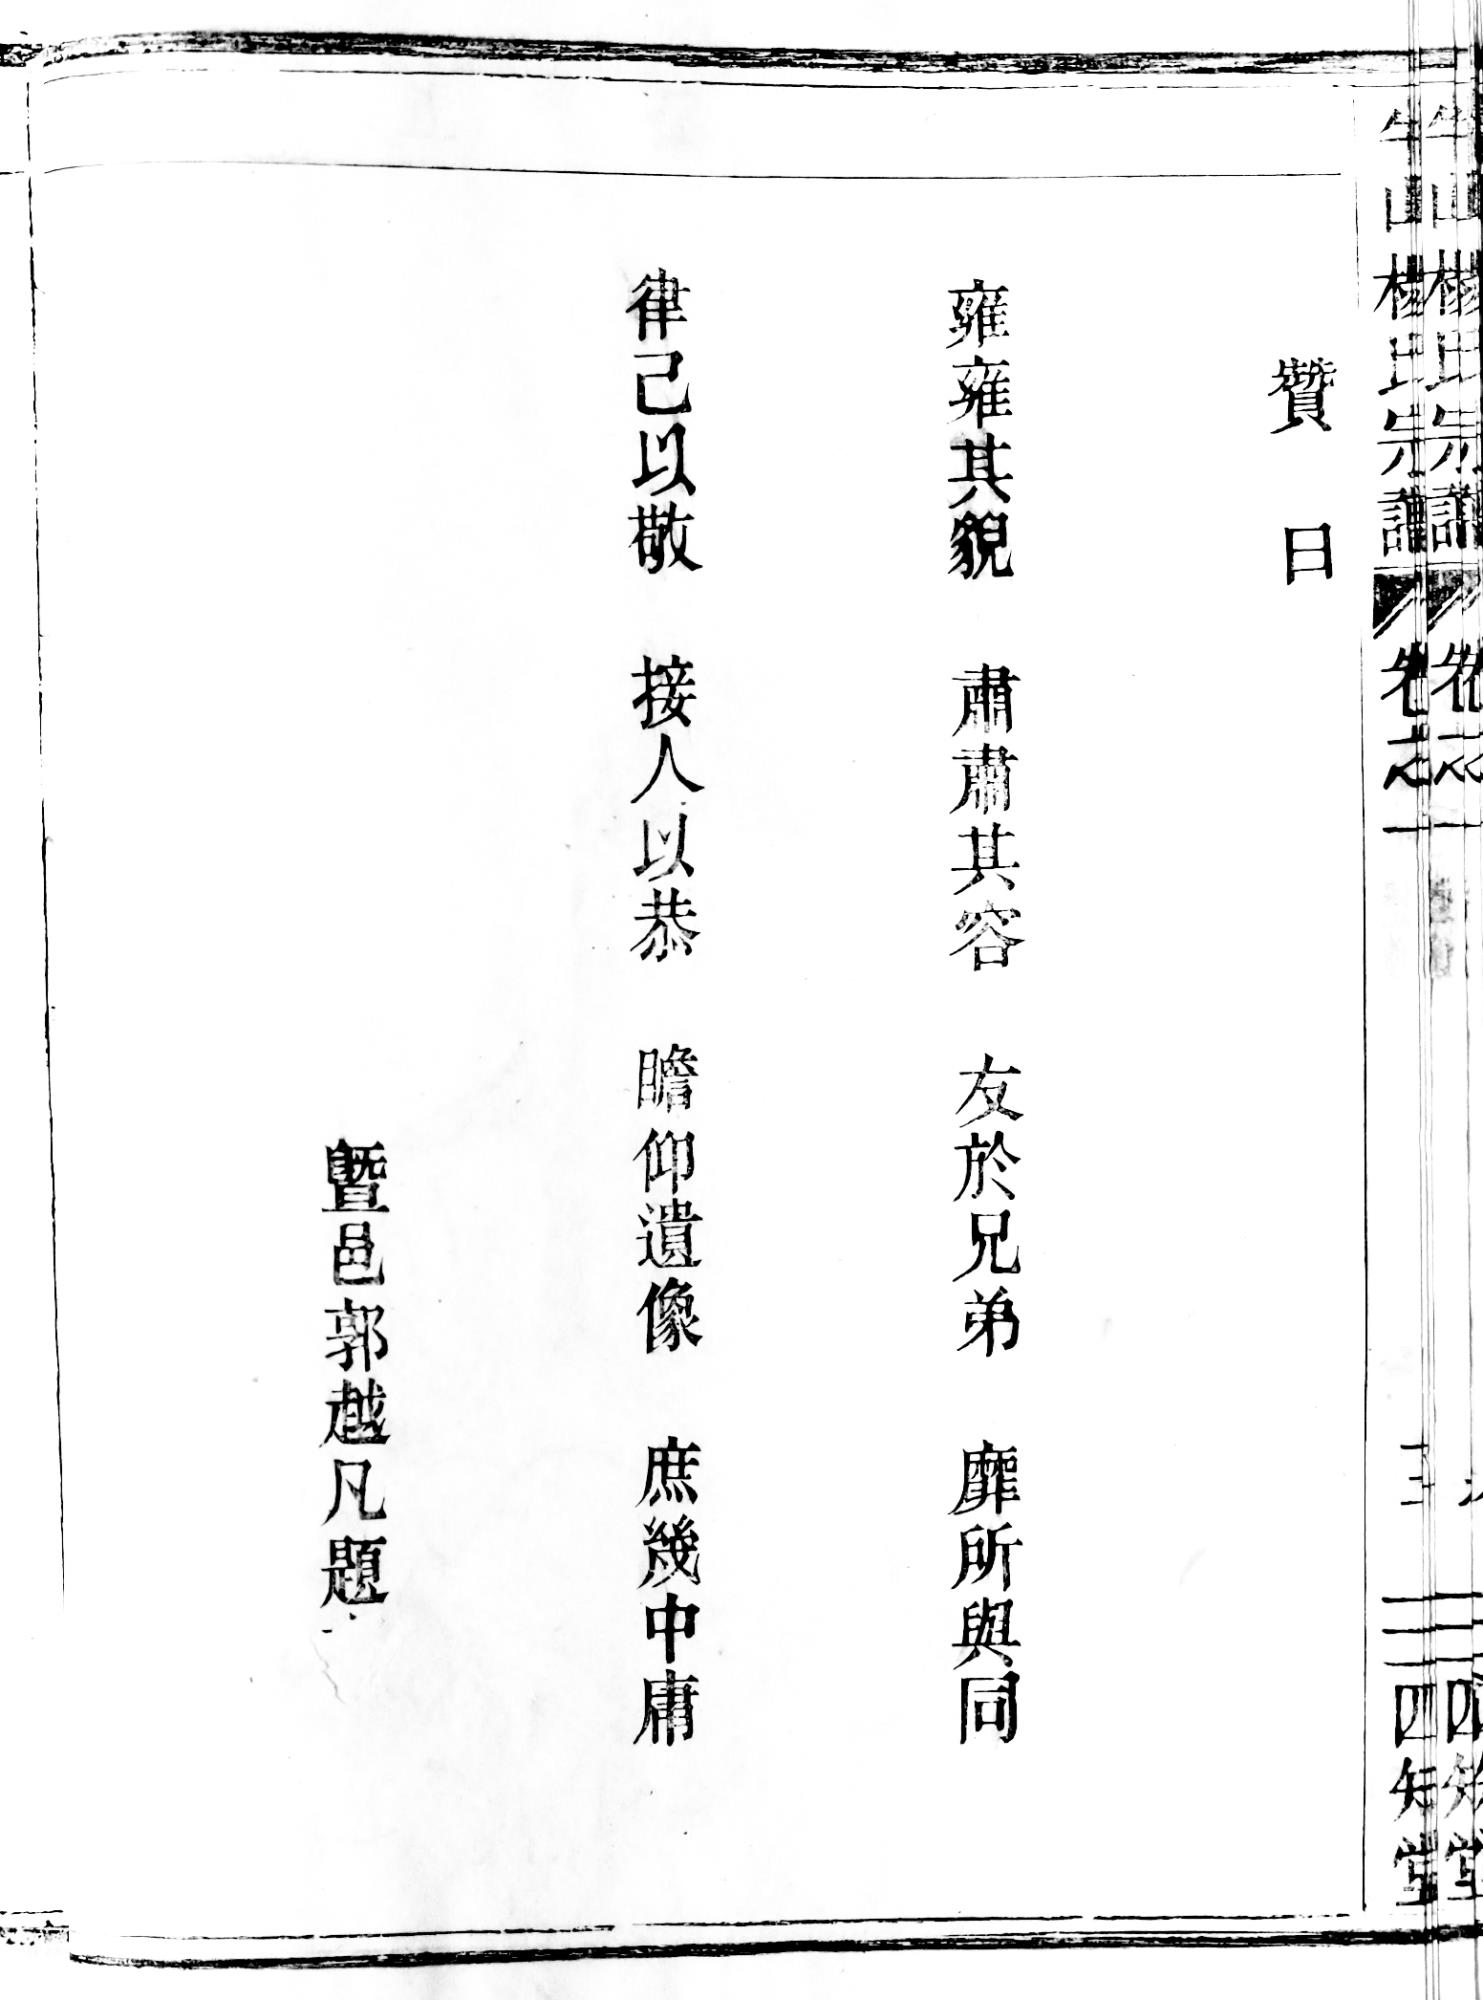 贊曰
雍雍其貌 肅肅其容 友於兄弟 靡所與同
律己以敬 接人以恭 瞻仰遺像 庶幾中庸
暨邑郭越凡題
山楊氏宗譜 卷之一 四知堂